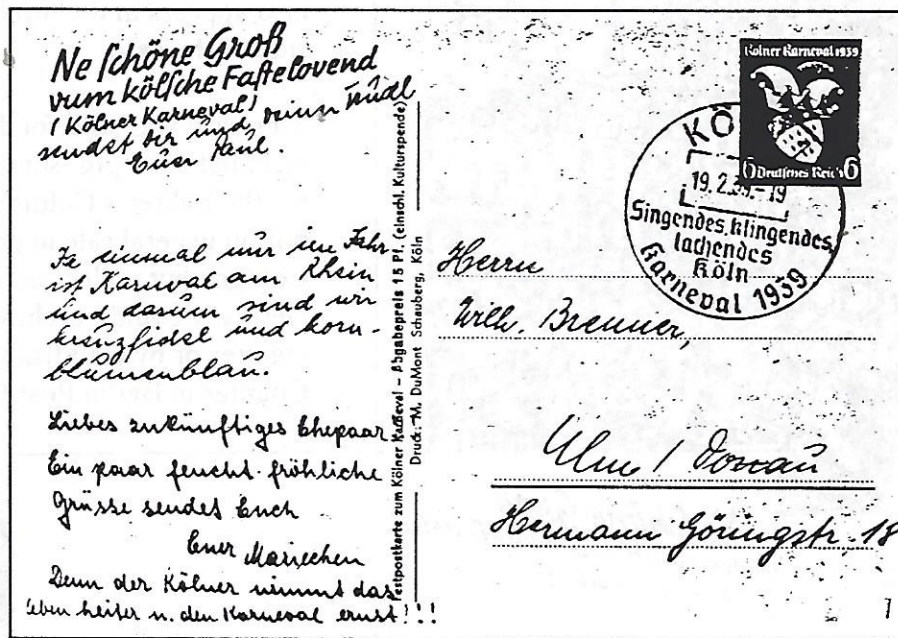 Ne schöne Groß
vum kölsche Fastelovend
(Kölner Karneval)
sendet dir und deiner Trudl
Euer Paul.
Ja einmal nur im Jahr
ist Karneval am Rhein
und darum sind wir
kreuzfidel und korn-
blumenblau.
Liebes zukünftiges Ehepaar
Ein paar feucht-fröhliche
Grüsse sendet Euch
Euer Mariechen
Denn der Kölner nimmt das
Leben heiter u. den Karneval ernst!!!
Festpostkarte zum Kölner Karneval – Abgabepreis 15 Pf. (einschl. Kulturspende)
Druck: M. DuMont Schauberg, Köln
Kölner Karneval 1939
6 Deutsches Reich 6
KÖ
19.2.39-19
Singendes, klingendes,
lachendes
Köln
Karneval 1939
Herrn
Wilh. Brenner,
Ulm / Donau
Hermann Göringstr. 18